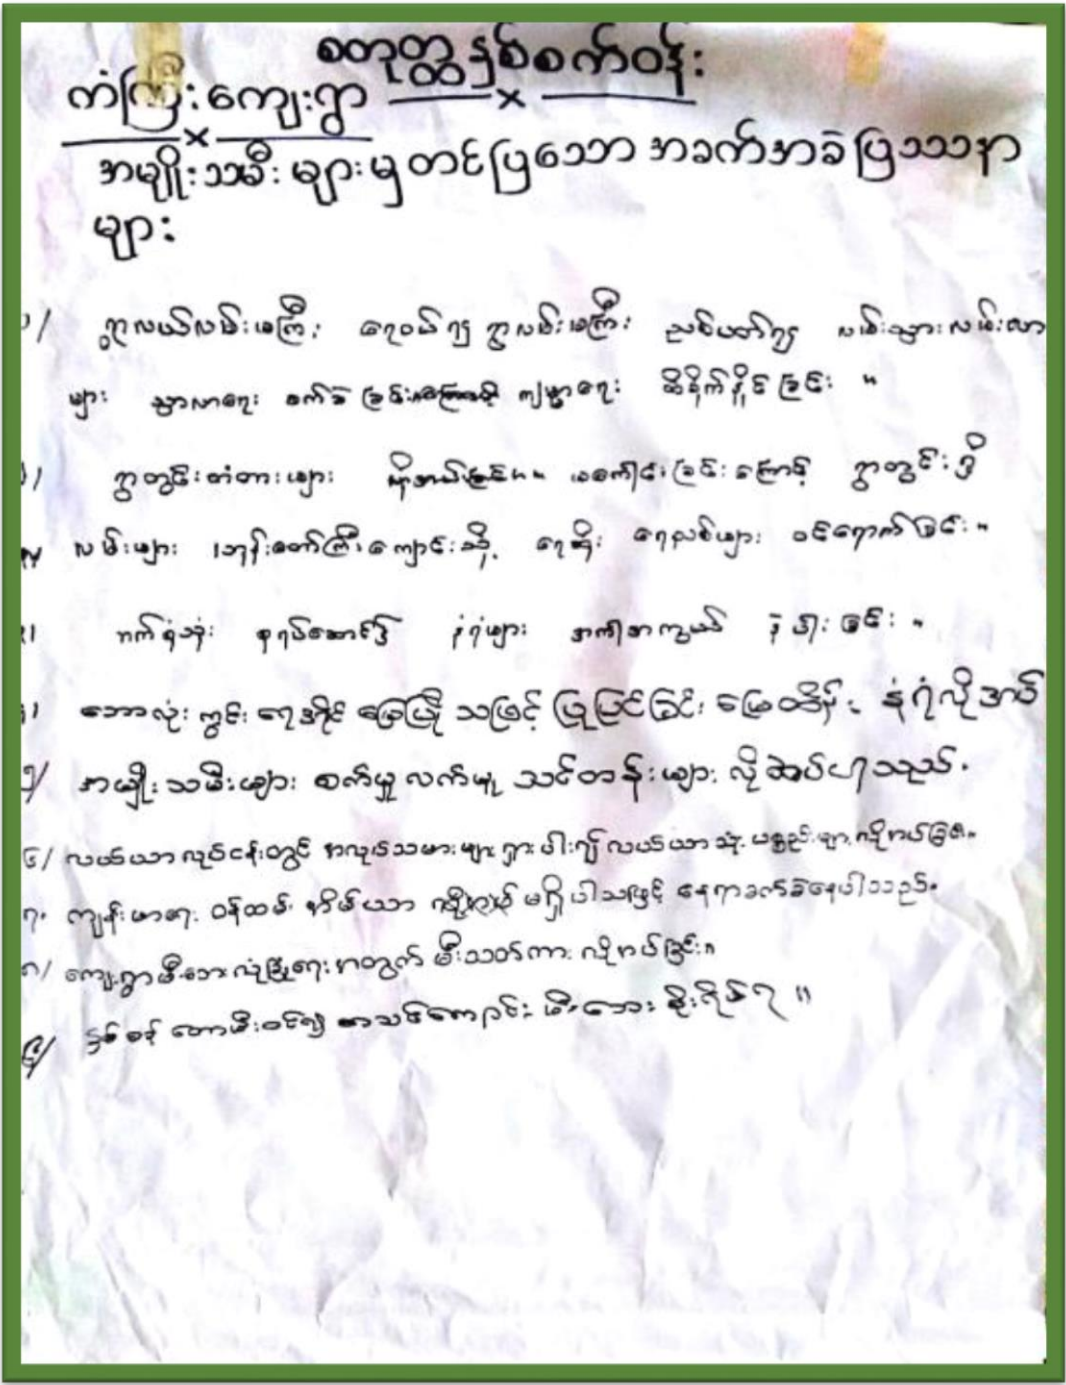 စတုတ္ထနှစ်စက်ဝန်း
ကံကြီးကျေးရွာ
အမျိုးသမီးများမှတင်ပြသော အခက်အခဲပြဿနာ
များ
ရွာလယ်လမ်းမကြီး ရေဝပ်၍ ရွာလမ်းမကြီး ညစ်ပတ်၍ လမ်းသွားလမ်းလာ
များ သွားလာရေး ခက်ခဲခြင်း ကျမ္မာရေး ထိခိုက်နိုင်ခြင်း။
ရွာတွင်းတံတားများ မကောင်းခြင်းကြောင့် ရွာတွင်းရှိ
လမ်းများ ဘုန်းတော်ကြီးကျောင်းသို့ ရေဆိုး ရေညစ်များ ဝင်ရောက်ခြင်း။
ဘက်ရုံသုံး နံရံများ အကာအကွယ် ခြင်း။
ဘောလုံးကွင်း ရေတိုင် မြေပြို သဖြင့် ပြုပြင်ခြင်း မြေထိန်း နံရံလိုအပ်
၅/ အမျိုးသမီးများ စက်မှုလက်မှု သင်တန်းများ လိုအပ်ပါသည်။
၆/ လယ်ယာလုပ်ငန်းတွင် အလုပ်သမားများ ရှားပါး၍ လယ်ယာသုံး ပစ္စည်းများ လိုအပ်ခြင်း။
၇။ ကျန်းမာရေး ဝန်ထမ်း အိမ်ယာ မရှိပါသဖြင့် နေရာခက်ခဲနေပါသည်။
၈/ ကျေးရွာမီးဘေးလုံခြုံရေးအတွက် မီးသတ်ကား လိုအပ်ခြင်း။
၉/ နှစ်စဉ် တောမီးဝင်၍ စာသင်ကျောင်း မီးဘေး စိုးရိမ်ရ။